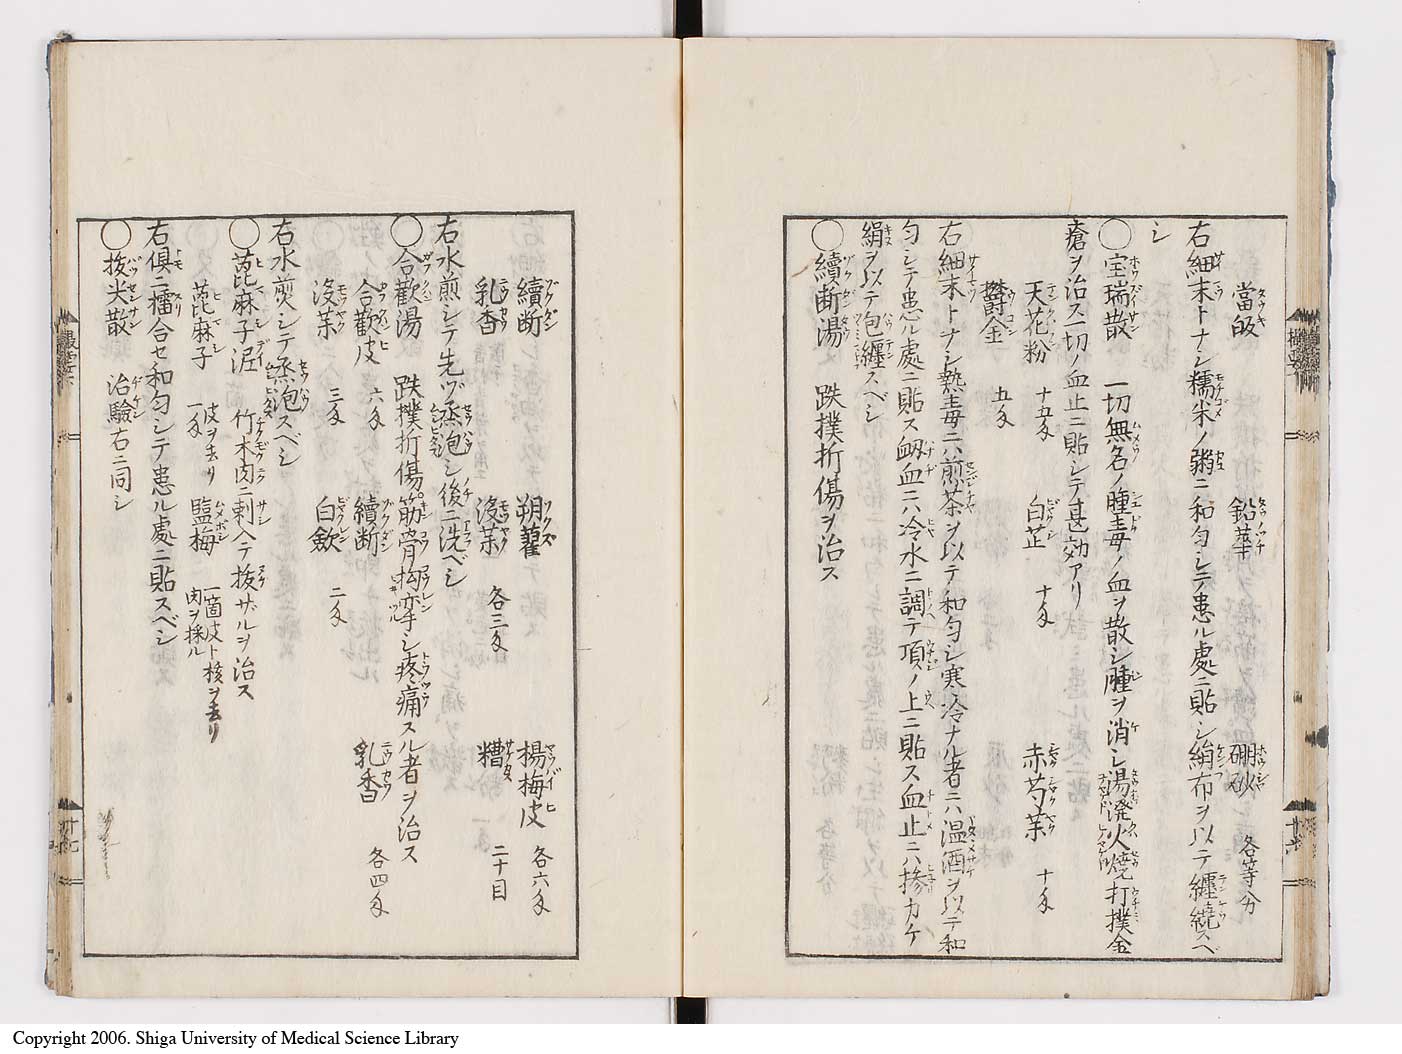 當皈 鉛葉 硼砂 各等分
右細末トナシ糯米ノ粥ニ和匀シテ患ル處ニ貼シ絹布ヲ以テ纒繞スベ
シ
◯宝瑞散 一切無名ノ腫毒ノ血ヲ散シ腫ヲ消シ湯潑火燒打撲金
瘡ヲ治ス一切ノ血止ニ貼シテ甚効アリ
天花粉 十五匁 白芷 十匁 赤芍薬 十匁
欝金 五匁
右細末トナシ熱毒ニハ煎茶ヲ以テ和匀シ寒冷ナル者ニハ温酒ヲ以テ和
匀シテ患ル處ニ貼ス衂血ニハ冷水ニ調テ項ノ上ニ貼ス血止ニハ摻カケ
絹ヲ以テ包纒スベシ
◯續断湯 跌撲折傷ヲ治ス
續断 朔藋 楊梅皮 各六匁
乳香 没薬 各三匁 糟 二十目
右水煎シテ先ヅ蒸㿺シ後ニ洗ベシ
◯合歡湯 跌撲折傷筋骨拘攣シ疼痛スル者ヲ治ス
合歡皮 六匁 續断 乳香 各四匁
没薬 三匁 白歛 二匁
右水煎シテ蒸㿺スベシ
◯蓖麻子泥 竹木肉ニ刺入テ抜ザルヲ治ス
蓖麻子 皮ヲ去リ一匁 塩梅 一箇皮ト核ヲ去リ肉ヲ採ル
右俱ニ擂合セ和匀シテ患ル處ニ貼スベシ
◯抜尖散 治驗右ニ同シ
Copyright 2006. Shiga University of Medical Science Library